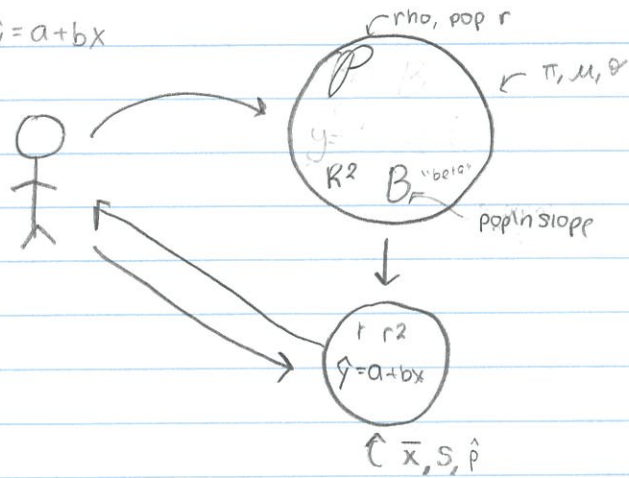 ŷ = a + bx
rho, pop r
ρ
π, μ, σ
y=
R² B "beta"
pop'n slope
r r2
ŷ = a + bx
x̄, S, p̂